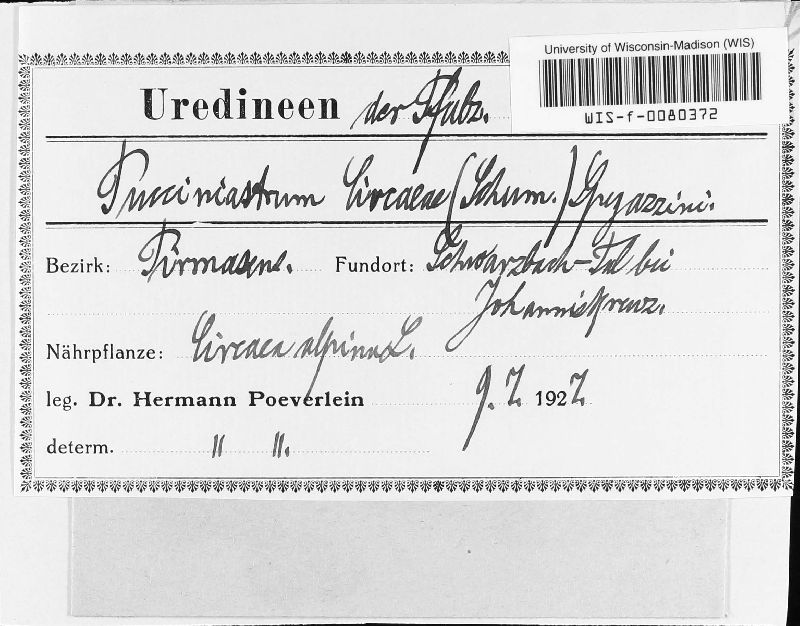 University of Wisconsin-Madison (WIS)
WIS-f-0080372
Uredineen der Pfalz.
Pucciniastrum Circaeae (Schum.) Spegazzini.
Bezirk: Pirmasens. Fundort: Schwarzbach-Tal bei
Johanniskreuz.
Nährpflanze: Circaea alpina L.
leg. Dr. Hermann Poeverlein 9. 7. 1927.
determ. " ".